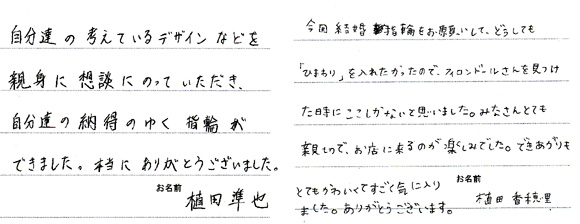 自分達の考えているデザインなどを
親身に想談にのっていただき、
自分達の納得のゆく指輪が
できました。本当にありがとうございました。
お名前
植田準也
今回結婚指輪をお願いして、どうしても
「ひまわり」を入れたかったので、フィロンドールさんを見つけ
た時にここしかないと思いました。みなさんとても
親切で、お店に来るのが楽しみでした。できあがりも
とてもかわいくてすごく気に入り
ました。ありがとうございます。
お名前
植田香穂里